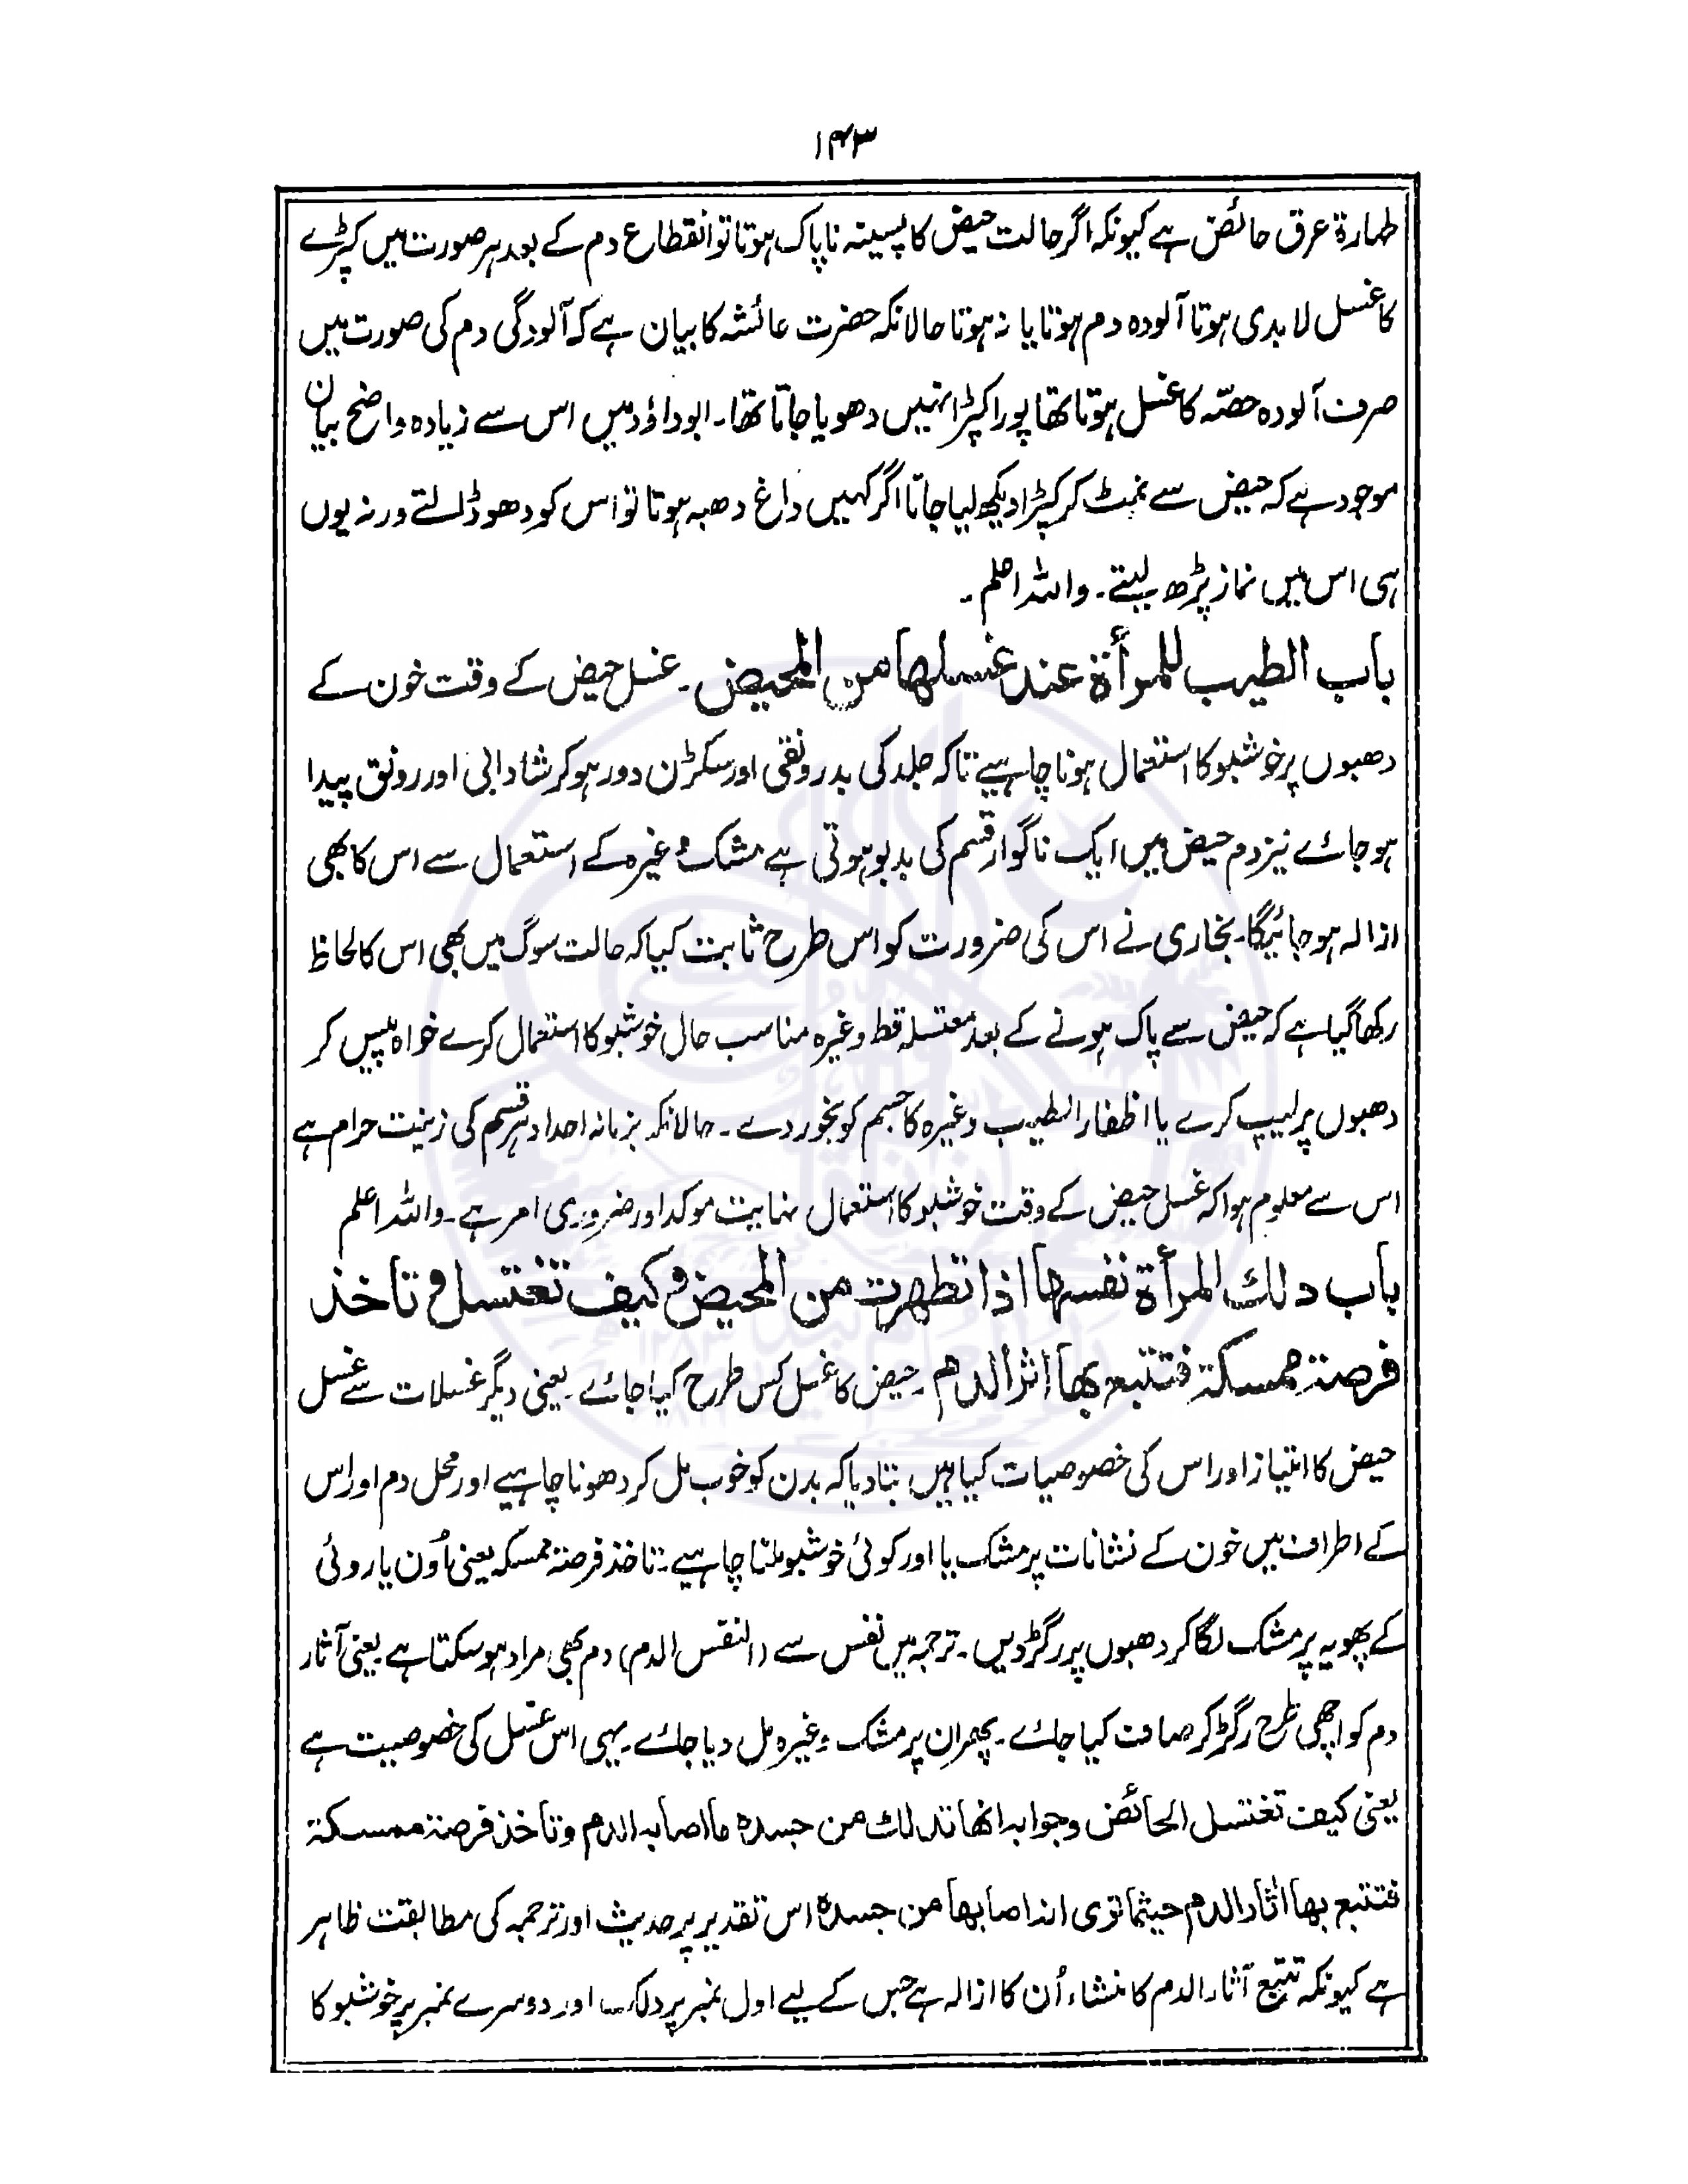 ۱۴۳
طہارۃ عرق حائض ہے کیونکہ اگر حالت حیض کا پسینہ ناپاک ہوتا تو انقطاع دم کے بعد ہر صورت میں کپڑے
کا غسل لابدی ہوتا آلودہ دم ہوتا یا نہ ہوتا حالانکہ حضرت عائشہ کا بیان ہے کہ آلودگی دم کی صورت میں
صرف آلودہ حصّہ کا غسل ہوتا تھا پورا کپڑا نہیں دھویا جاتا تھا۔ ابوداؤد میں اس سے زیادہ واضح بیان
موجود ہے کہ حیض سے نمٹ کر کپڑا دیکھ لیا جاتا اگر کہیں داغ دھبہ ہوتا تو اس کو دھو ڈالتے ورنہ یوں
ہی اس میں نماز پڑھ لیتے۔ واللہ اعلم۔
باب الطیب للمرأۃ عند غسلھا من المحیض۔ غسل حیض کے وقت خون کے
دھبوں پر خوشبو کا استعمال ہونا چاہیے تاکہ جلد کی بدرونقی اور سکڑن دور ہو کر شادابی اور رونق پیدا
ہو جائے نیز دم حیض میں ایک ناگوار قسم کی بدبو ہوتی ہے مشک وغیرہ کے استعمال سے اس کا بھی
ازالہ ہو جائیگا۔ بخاری نے اس کی ضرورت کو اس طرح ثابت کیا کہ حالت سوگ میں بھی اس کا لحاظ
رکھا گیا ہے کہ حیض سے پاک ہونے کے بعد مغتسلہ قط وغیرہ مناسب حال خوشبو کا استعمال کرے خواہ پیس کر
دھبوں پر لیپ کرے یا اظفار الطیب وغیرہ کا جسم کو بخور دے۔ حالانکہ بزمانہ احداد ہر قسم کی زینت حرام ہے
اس سے معلوم ہوا کہ غسل حیض کے وقت خوشبو کا استعمال نہایت موکد اور ضروری امر ہے۔ واللہ اعلم
باب دلک المرأۃ نفسھا اذا تطھرت من المحیض وکیف تغتسل وتاخذ
فرصۃ ممسکۃ فتتبع بھا اثر الدم۔ حیض کا غسل کس طرح کیا جائے۔ یعنی دیگر غسلات سے غسل
حیض کا امتیاز اور اس کی خصوصیات کیا ہیں، بتا دیا کہ بدن کو خوب مل کر دھونا چاہیے اور محل دم اور اس
کے اطراف میں خون کے نشانات پر مشک یا اور کوئی خوشبو ملنا چاہیے۔ تاخذ فرصۃ ممسکہ یعنی اُون یا روئی
کے پھویہ پر مشک لگا کر دھبوں پر رگڑ دیں۔ ترجمہ میں نفس سے (النفس الدم) دم بھی مراد ہو سکتا ہے یعنی آثار
دم کو اچھی طرح رگڑ کر صاف کیا جائے۔ پھر ان پر مشک وغیرہ مل دیا جائے۔ یہی اس غسل کی خصوصیت ہے
یعنی کیف تغتسل الحائض وجوابہ انھا تدلک من جسدہ ما اصابہ الدم وتاخذ فرصۃ ممسکۃ
فتتبع بھا اثار الدم حیثما تری انہ اصابھا من جسدہ اس تقدیر پر حدیث اور ترجمہ کی مطابقت ظاہر
ہے کیونکہ تتبّع آثار الدم کا منشاء اُن کا ازالہ ہے جس کے لیے اول نمبر پر دلک اور دوسرے نمبر پر خوشبو کا